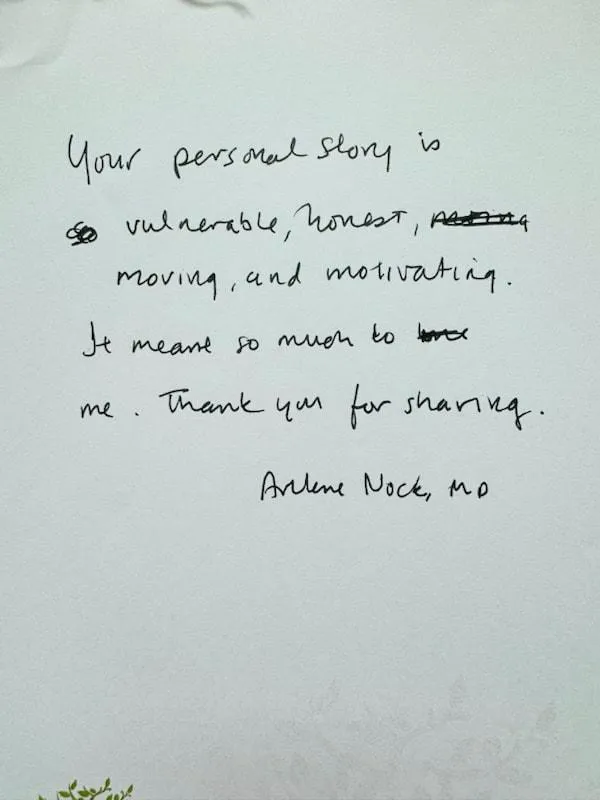 Your personal story is
vulnerable, honest,
moving, and motivating.
It meant so much to
me. Thank you for sharing.
Arlene Nock, MD